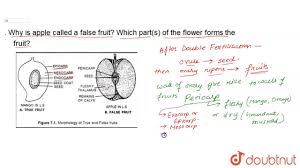 Why is apple called a false fruit? Which part(s) of the flower forms the
fruit?
EPICARP
MESOCARP
ENDOCARP
SEED
PERICARP
SEED
FLESHY
THALAMUS
REMAINS
OF CALYX
MANGO IN L.S
A. TRUE FRUIT
APPLE IN L.S
B. FALSE FRUIT
Figure 7.1. Morphology of True and False fruits
After Double Fertilization -
ovule → seed
then ovary ripens → fruits
wall of ovary give rise to wall of
fruits Pericarp
fleshy (Mango, Orange)
or dry (Groundnut,
mustard)
→ Exocarp or
Epicarp
→ Mesocarp
doubtnut